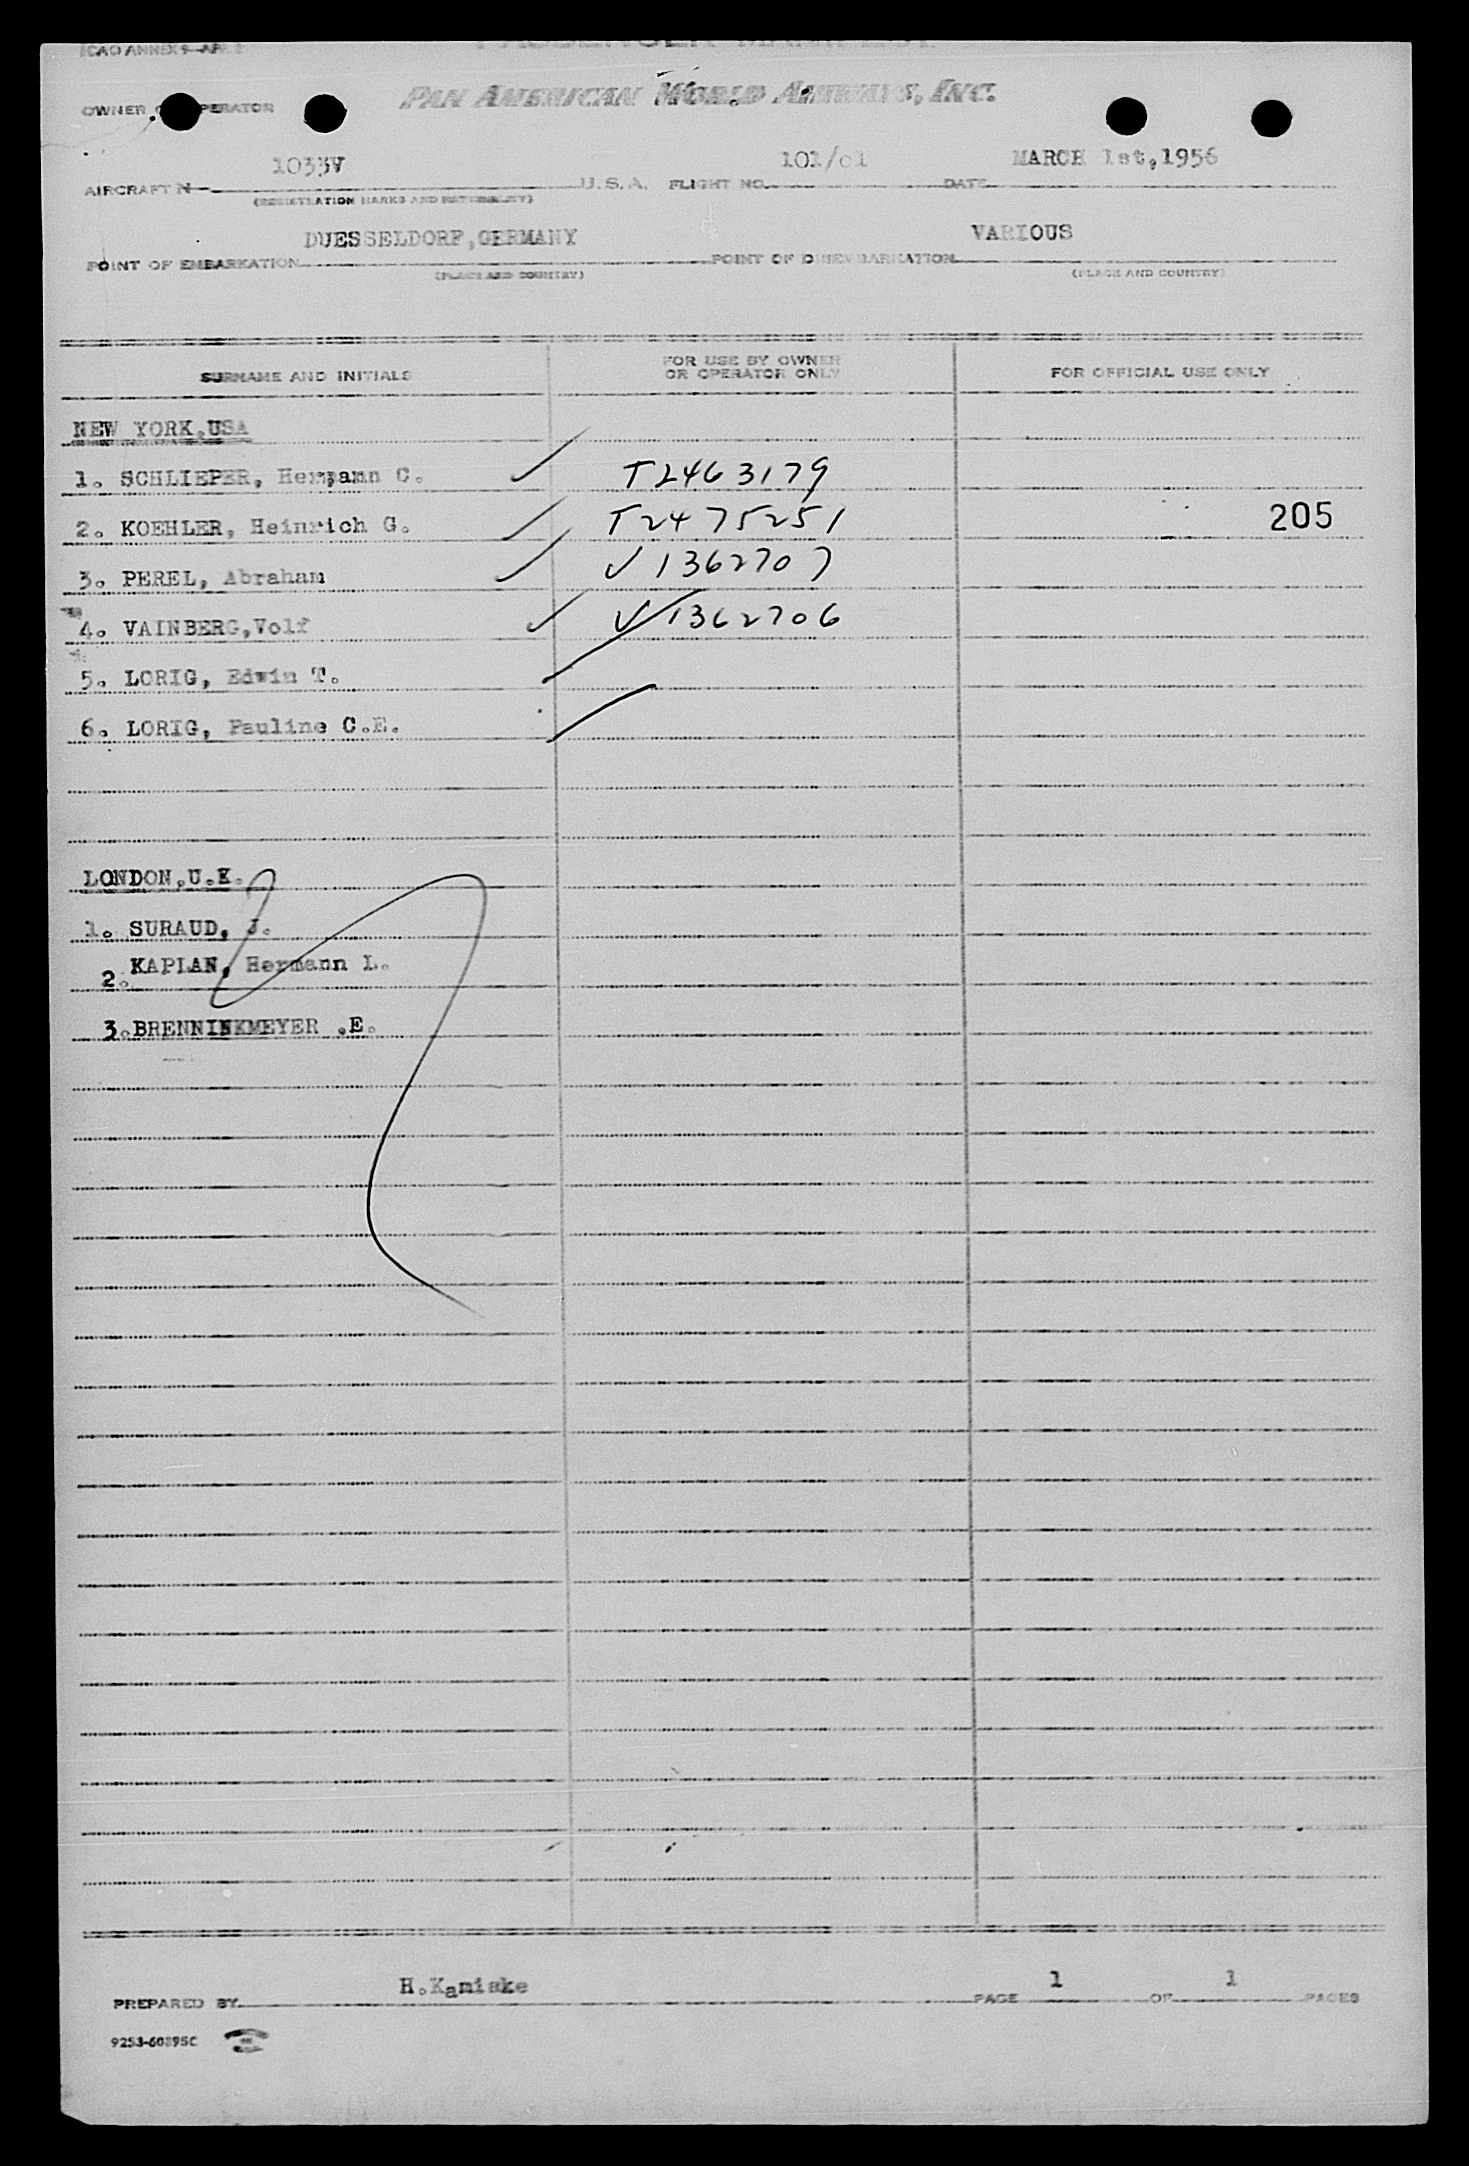 ICAO ANNEX 9-APP.
PASSENGER MANIFEST
OWNER OR OPERATOR PAN AMERICAN WORLD AIRWAYS, INC.
1033V 101/01 MARCH 1st,1956
AIRCRAFT N U.S.A. FLIGHT NO. DATE
(REGISTRATION MARKS AND NATIONALITY)
DUESSELDORF,GERMANY VARIOUS
POINT OF EMBARKATION POINT OF DISEMBARKATION
(PLACE AND COUNTRY) (PLACE AND COUNTRY)
SURNAME AND INITIALS FOR USE BY OWNER OR OPERATOR ONLY FOR OFFICIAL USE ONLY
NEW YORK,USA
1. SCHLIEPER, Hermann C. T2463179
2. KOEHLER, Heinrich G. T2475251 205
3. PEREL, Abraham V1362707
4. VAINBERG,Volf V1362706
5. LORIG, Edwin T.
6. LORIG, Pauline C.E.
LONDON,U.K.
1. SURAUD, J.
2. KAPLAN, Hermann L.
3.BRENNINKMEYER .E.
H.Kamiske 1 1
PREPARED BY PAGE OF PAGES
9253-60895C